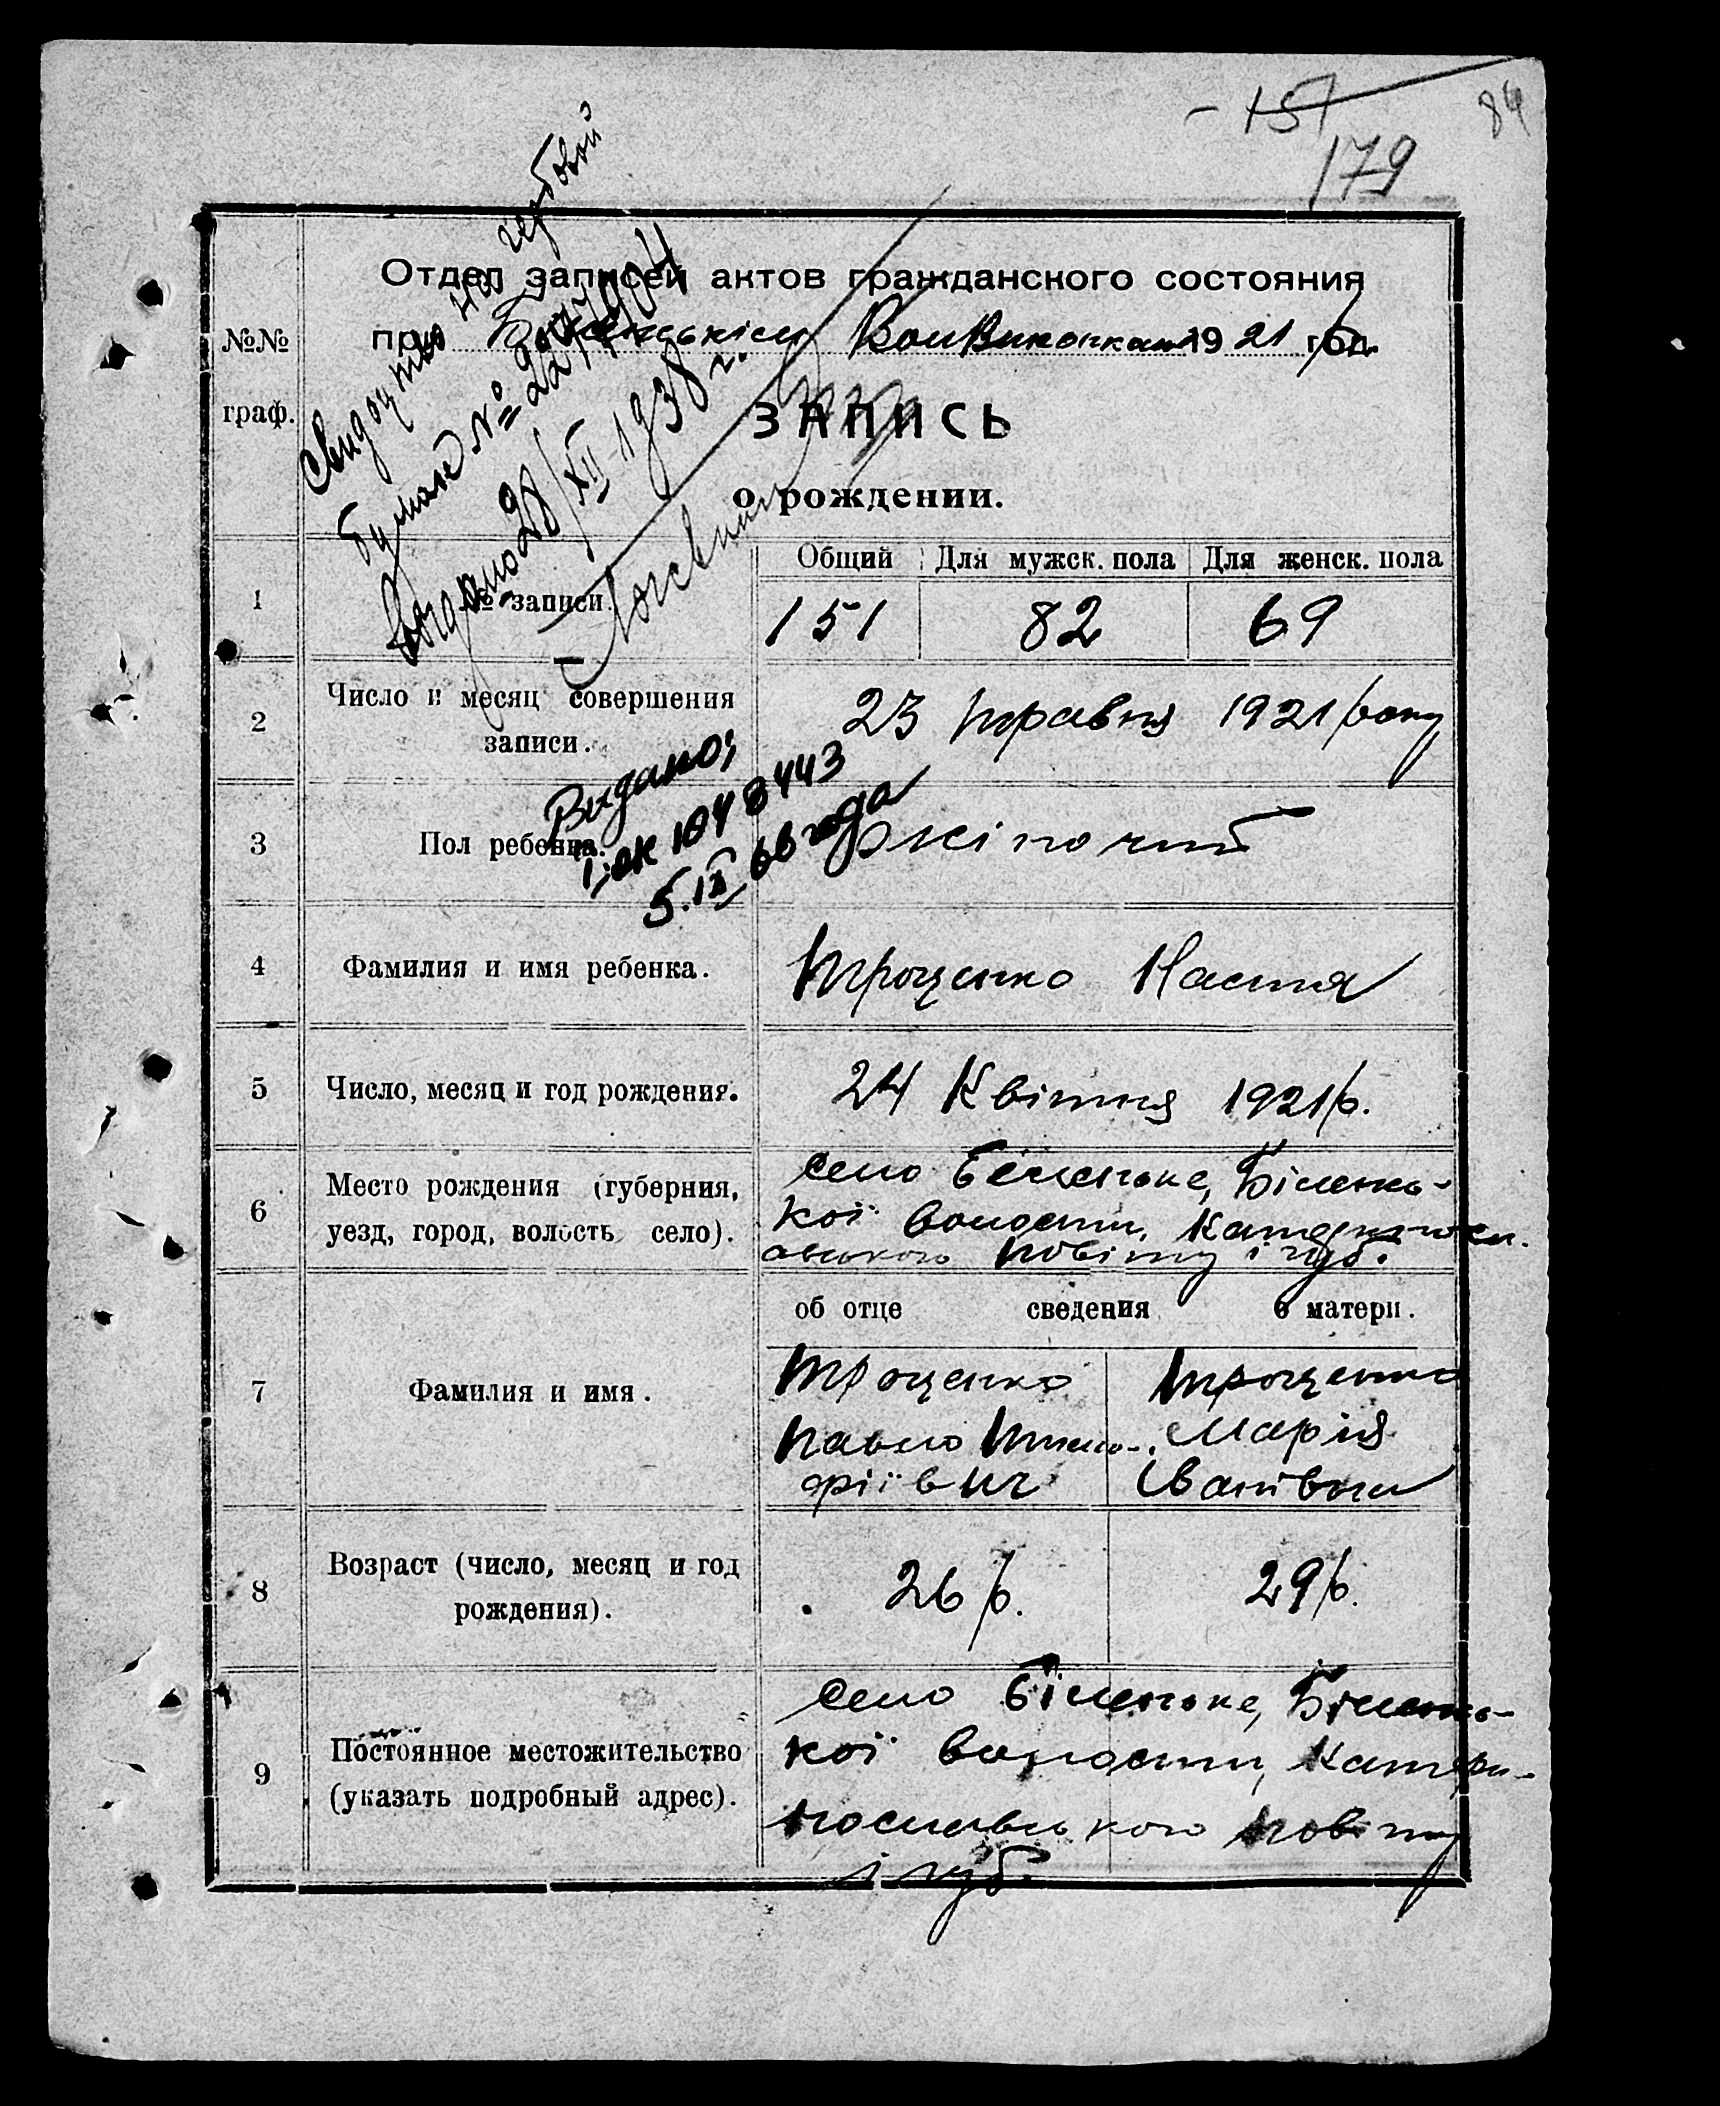 - 157
84
179
Отдел записей актов гражданского состояния
при Біленськім ВолВиконкомі 1921 год р.
№№ граф.
ЗАПИСЬ
о рождении.
Свидоцтво на гербовой
бумаге №
выдано 28/XII-1938 г.
Общий Для мужск. пола Для женск. пола
1 № записи. 151 82 69
2 Число и месяц совершения
записи.
23 травня 1921 року
Видано:
I-ЖК 1048443
5.IX 66 года
3 Пол ребенка. жіночий
4 Фамилия и имя ребенка. Троценко Настя
5 Число, месяц и год рождения. 24 Квітня 1921 р.
6 Место рождения (губерния,
уезд, город, волость село).
село Біленьке, Білень-
кої волости, Катеринос-
авського повіту і губ.
об отце сведения о матери.
7 Фамилия и имя.
Троценко
Павло Тимо-
фіївич
Троценко
Марія
Іванівна
8 Возраст (число, месяц и год
рождения).
26 р. 29 р.
9 Постоянное местожительство
(указать подробный адрес).
село Біленьке, Білень-
кої волости, Катери-
нославського повіту
і губ.